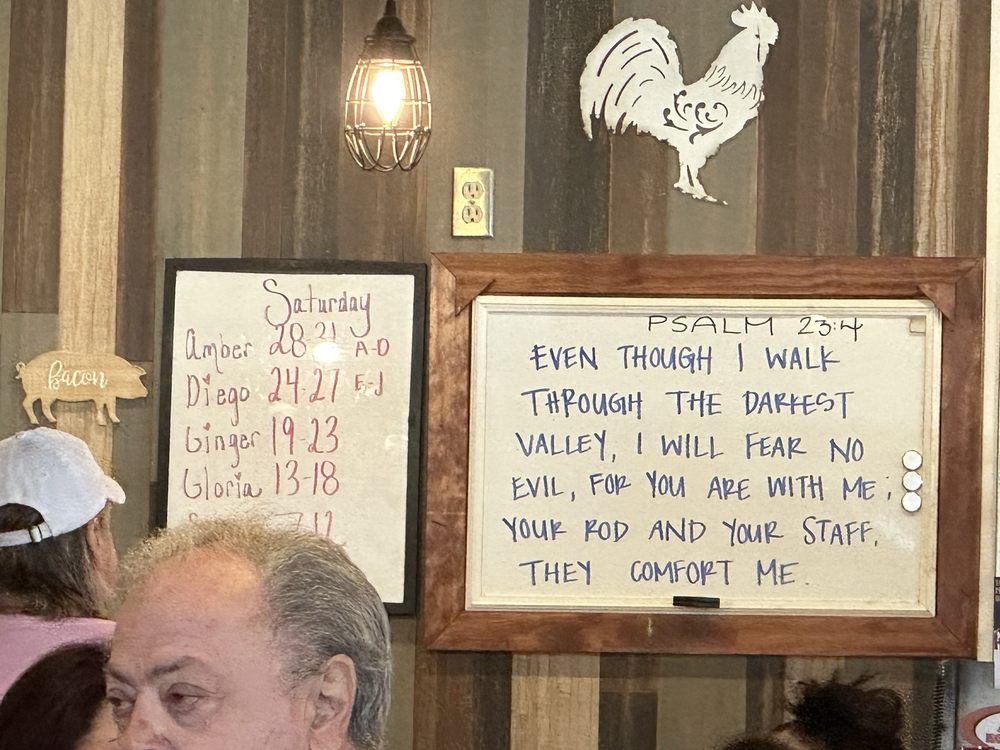 Bacon
Saturday
Amber 28-31 A-D
Diego 24-27 E-J
Ginger 19-23
Gloria 13-18
7-12
PSALM 23:4
EVEN THOUGH I WALK
THROUGH THE DARKEST
VALLEY, I WILL FEAR NO
EVIL, FOR YOU ARE WITH ME;
YOUR ROD AND YOUR STAFF,
THEY COMFORT ME.